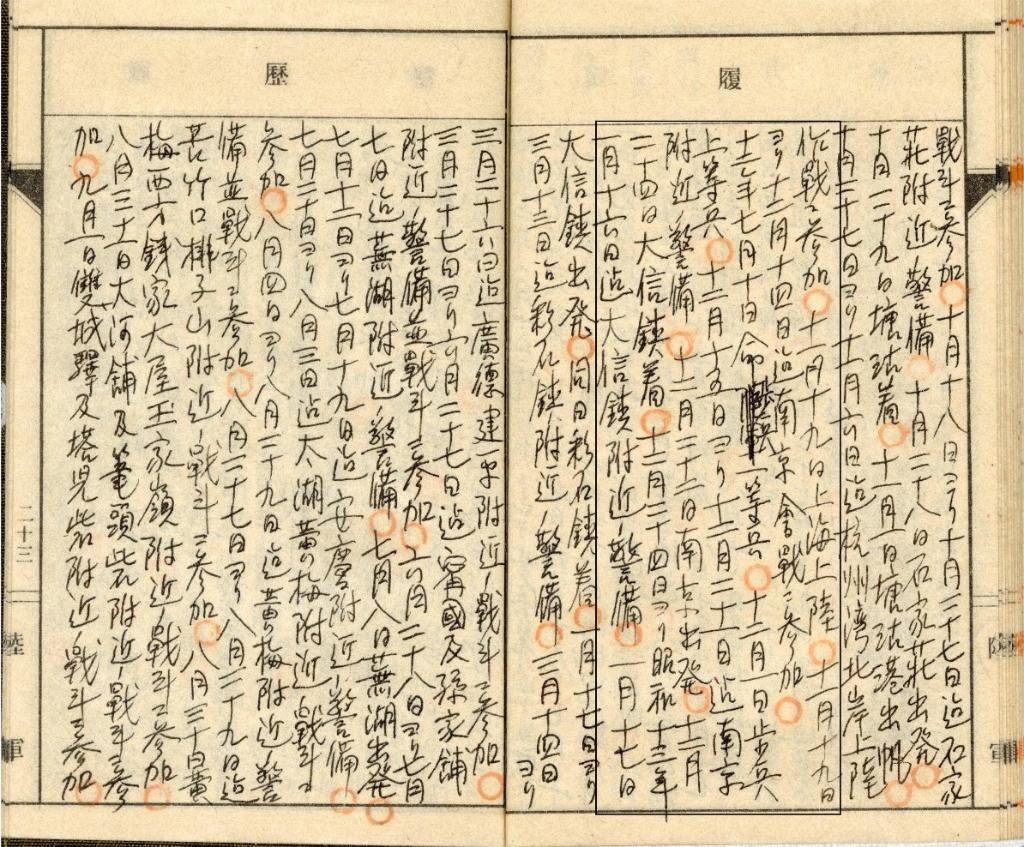 履
戰斗ニ参加〇十月十八日ヨリ十月二十七日迄石家
莊附近ノ警備〇十月二十八日石家莊出発〇
十月二十九日塘沽着〇十一月一日塘沽港出帆〇
十月二十七日ヨリ十一月六日迄杭州湾北岸上陸
作戰ニ参加〇十一月十九日上海上陸〇十一月十九日
ヨリ十二月十四日迄南京會戰ニ参加〇
十二年七月十日命一等兵〇十二月一日歩兵
上等兵〇十二月十五日ヨリ十二月二十一日迄南京
附近ノ警備〇十二月二十二日南京出発〇十二月
二十四日大信鎮着〇十二月二十四日ヨリ昭和十三年
一月十六日迄大信鎮附近ノ警備〇一月十七日
大信鎮出発〇同日彩石鎮着〇一月十七日ヨリ
三月十三日迄彩石鎮附近ノ警備〇三月十四日ヨリ
歷
三月二十六日迄廣德建平附近ノ戰斗ニ参加〇
三月二十七日ヨリ六月二十七日迄甯國及孫家舖
附近ノ警備並戰斗ニ参加〇六月二十八日ヨリ七月
七日迄蕪湖附近ノ警備〇七月八日蕪湖出発〇
七月十二日ヨリ七月十九日迄安慶附近ノ警備〇
七月二十日ヨリ八月三日迄太湖黄梅附近ノ戰斗ニ
参加〇八月四日ヨリ八月二十九日迄黄梅附近ノ警
備並戰斗ニ参加〇八月二十七日ヨリ八月二十九日迄
苦竹口排子山附近ノ戰斗ニ参加〇八月三十日黄
梅西方錢家大屋王家嶺附近ノ戰斗ニ参加〇
八月三十一日大河舖及筆頭岩附近ノ戰斗ニ参
加〇九月一日雙城驛及塔児岩附近ノ戰斗ニ参加〇
二十三
陸
軍
陸
軍